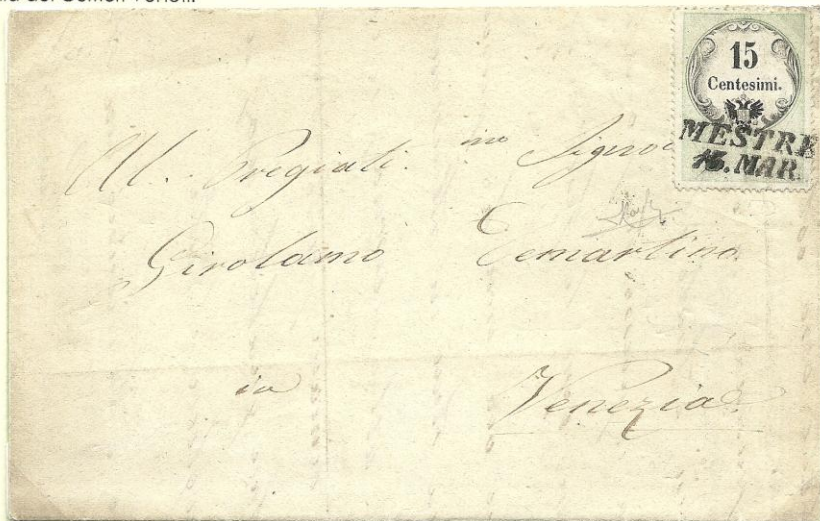 15
Centesimi.
MESTRE
15. MAR.
Al. Pregiati.mo Signor
Girolamo Demartino.
in Venezia